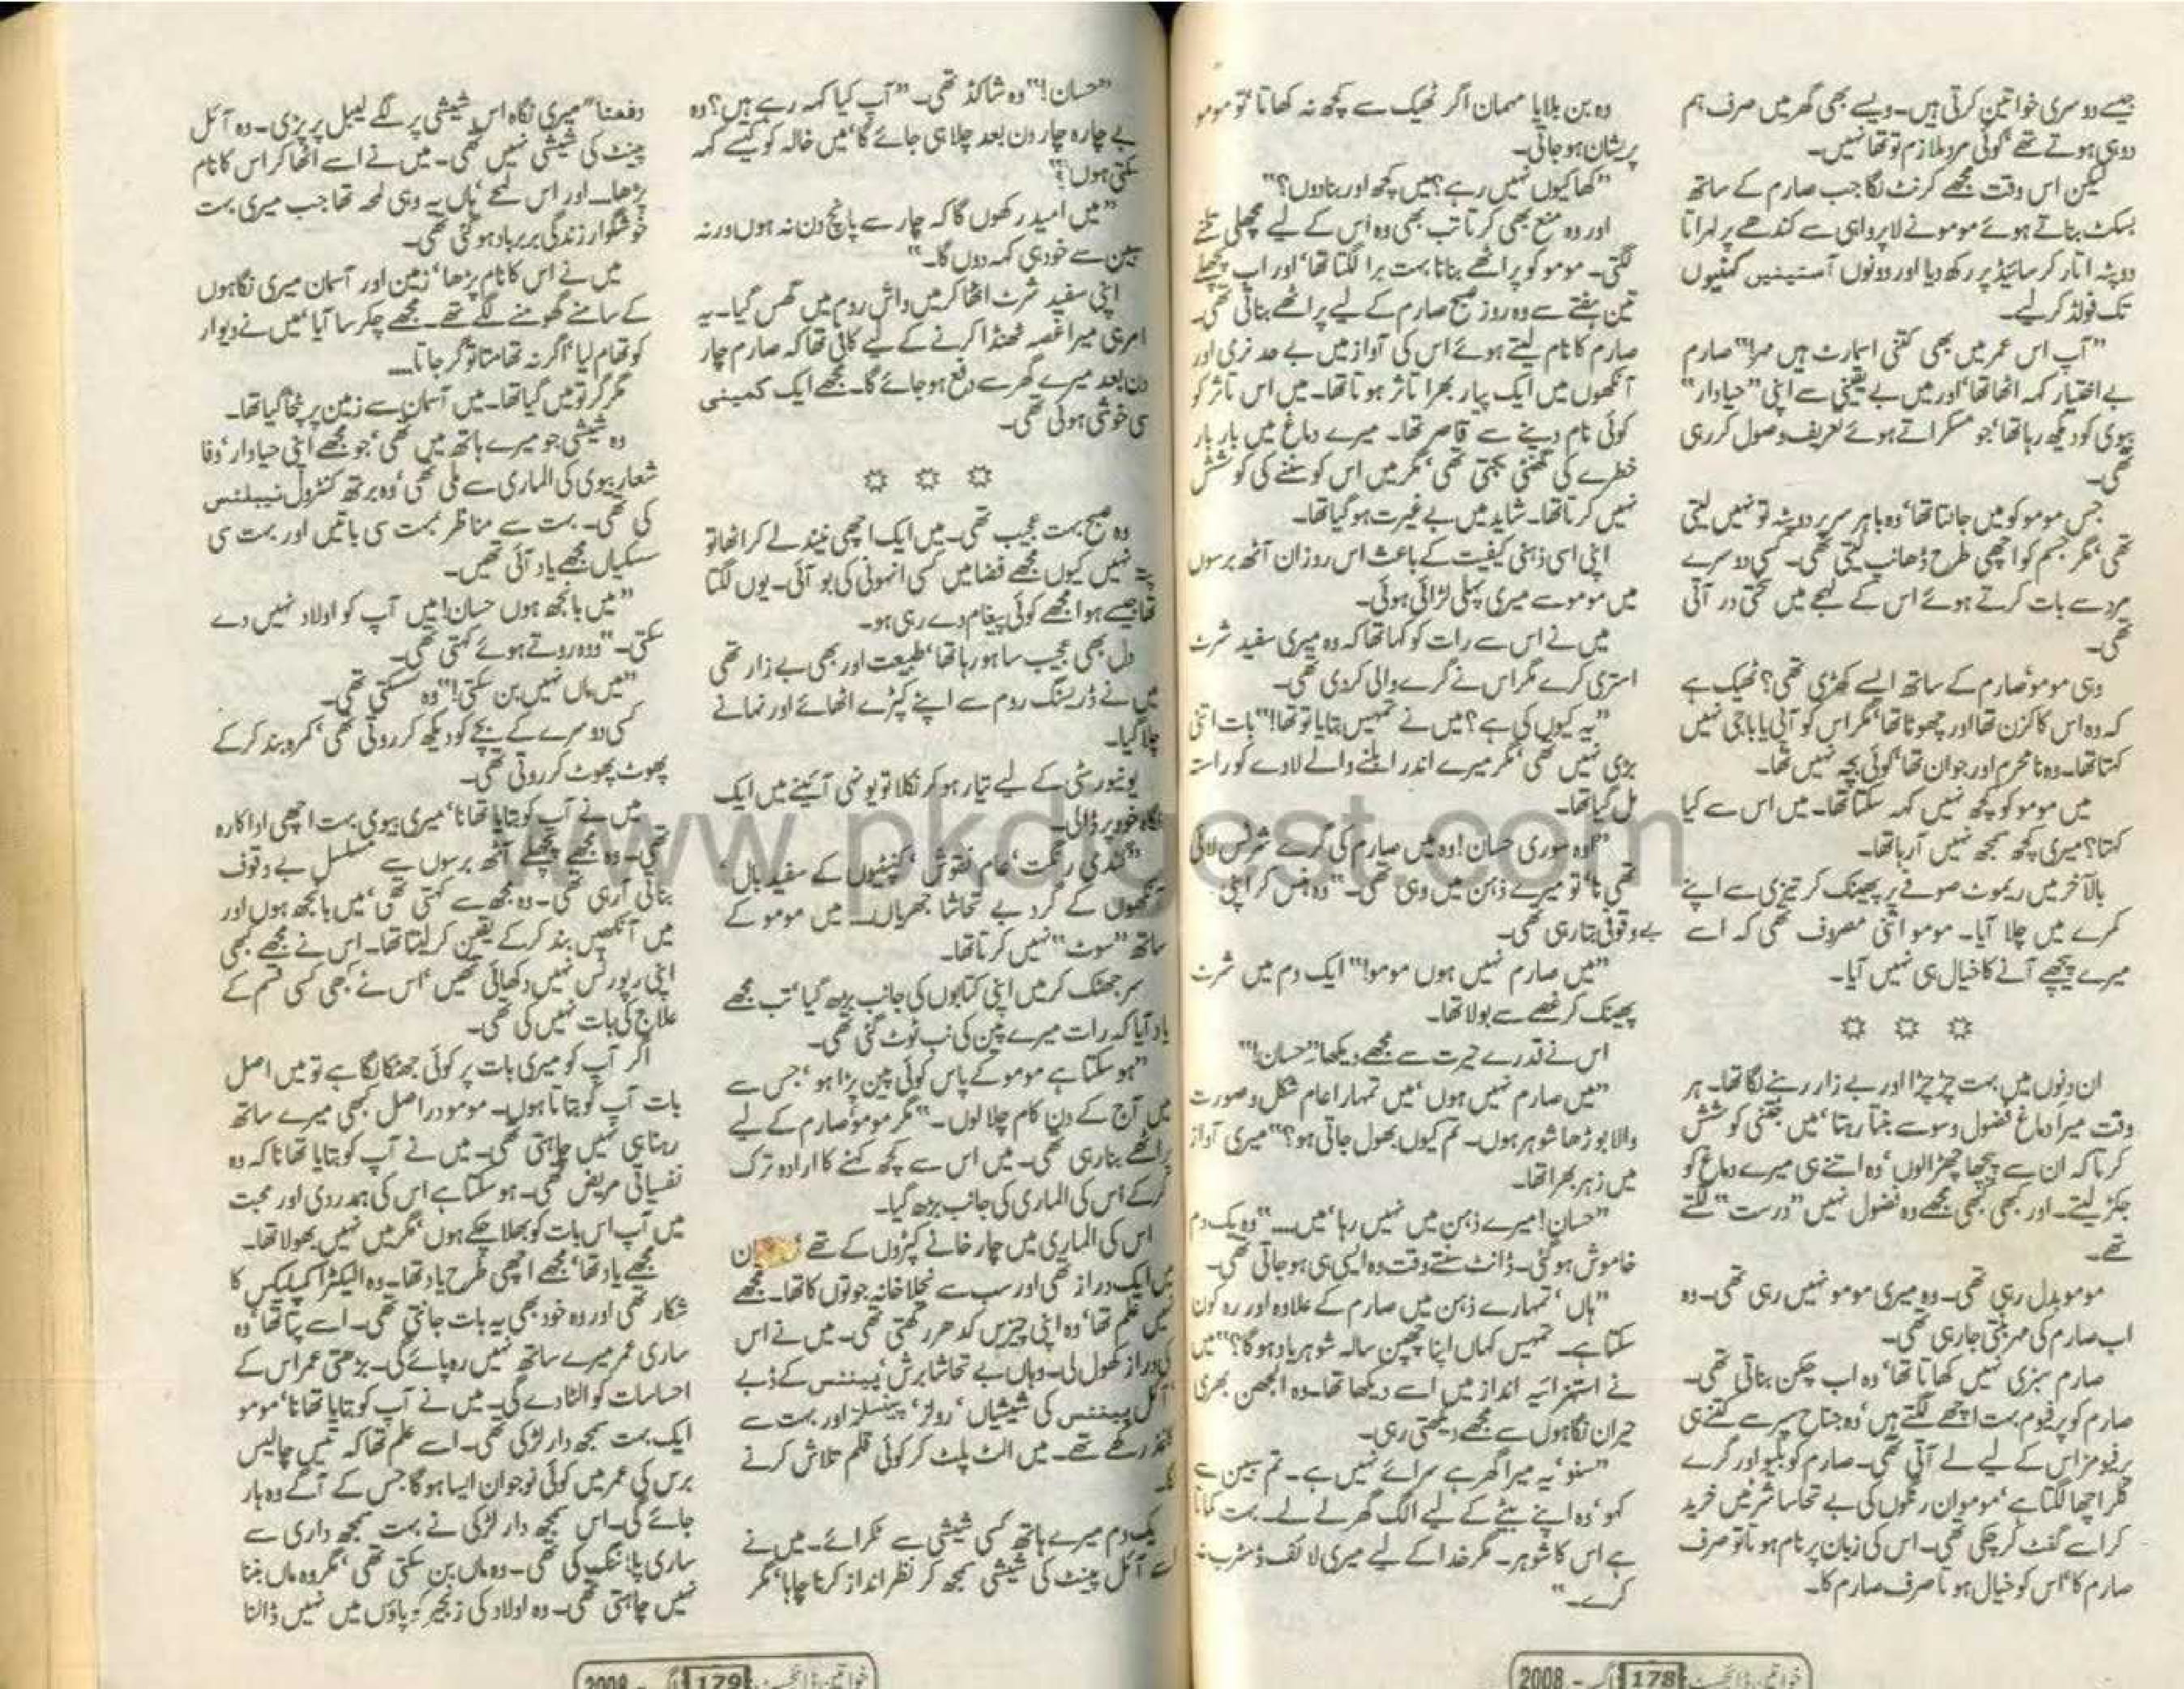 جیسے دوسری خواتین کرتی ہیں۔ ویسے بھی گھر میں صرف ہم
دو ہی ہوتے تھے‘ کوئی مرد ملازم تو تھا نہیں۔
لیکن اس وقت مجھے کرنٹ لگا جب صارم کے ساتھ
بسکٹ بناتے ہوئے مومو نے لاپرواہی سے کندھے پر لہراتا
دوپٹہ اتار کر سائیڈ پر رکھ دیا اور دونوں آستینیں کہنیوں
تک فولڈ کر لیے۔
”آپ اس عمر میں بھی کتنی اسمارٹ ہیں مہر!“ صارم
بے اختیار کہہ اٹھا تھا‘ اور میں بے یقینی سے اپنی ”حیادار“
بیوی کو دیکھ رہا تھا‘ جو مسکراتے ہوئے تعریف وصول کر رہی
تھی۔
جس مومو کو میں جانتا تھا‘ وہ باہر سر پر دوپٹہ تو نہیں لیتی
تھی‘ مگر جسم کو اچھی طرح ڈھانپ لیتی تھی۔ کسی دوسرے
مرد سے بات کرتے ہوئے اس کے لہجے میں سختی در آتی
تھی۔
وہی مومو صارم کے ساتھ ایسے کھڑی تھی؟ ٹھیک ہے
کہ وہ اس کا کزن تھا اور چھوٹا تھا‘ مگر اس کو آپی یا باجی نہیں
کہتا تھا۔ وہ نامحرم اور جوان تھا‘ کوئی بچہ نہیں تھا۔
میں مومو کو کچھ نہیں کہہ سکتا تھا۔ میں اس سے کیا
کہتا؟ میری کچھ سمجھ نہیں آ رہا تھا۔
بالآخر میں ریموٹ صوفے پر پھینک کر تیزی سے اپنے
کمرے میں چلا آیا۔ مومو اتنی مصروف تھی کہ اسے
میرے پیچھے آنے کا خیال ہی نہیں آیا۔
ان دنوں میں بہت چڑچڑا اور بے زار رہنے لگا تھا۔ ہر
وقت میرا دماغ فضول وسوسے بنتا رہتا‘ میں جتنی کوشش
کرتا کہ ان سے پیچھا چھڑا لوں‘ وہ اتنے ہی میرے دماغ کو
جکڑ لیتے۔ اور کبھی کبھی مجھے وہ فضول نہیں ”درست“ لگتے
تھے۔
مومو بدل رہی تھی۔ وہ میری مومو نہیں رہی تھی۔ وہ
اب صارم کی مہر بنتی جا رہی تھی۔
صارم سبزی نہیں کھاتا تھا‘ وہ اب چکن بناتی تھی۔
صارم کو پرفیوم بہت اچھے لگتے ہیں‘ وہ جناح سپر سے کتنے ہی
پرفیومز اس کے لیے لے آئی تھی۔ صارم کو بلیو اور گرے
کلر اچھا لگتا ہے‘ مومو ان رنگوں کی بے تحاشا شرٹس خرید
کر اسے گفٹ کر چکی تھی۔ اس کی زبان پر نام ہوتا تو صرف
صارم کا‘ اس کو خیال ہوتا صرف صارم کا۔
وہ بن بلایا مہمان اگر ٹھیک سے کچھ نہ کھاتا تو مومو
پریشان ہو جاتی۔
”کھا کیوں نہیں رہے؟ میں کچھ اور بنا دوں؟“
اور وہ منع بھی کرتا تب بھی وہ اس کے لیے مچھلی تلنے
لگتی۔ مومو کو پراٹھے بنانا بہت برا لگتا تھا‘ اور اب پچھلے
تین ہفتے سے وہ روز صبح صارم کے لیے پراٹھے بناتی تھی۔
صارم کا نام لیتے ہوئے اس کی آواز میں بے حد نرمی اور
آنکھوں میں ایک پیار بھرا تاثر ہوتا تھا۔ میں اس تاثر کو
کوئی نام دینے سے قاصر تھا۔ میرے دماغ میں بار بار
خطرے کی گھنٹی بجتی تھی‘ مگر میں اس کو سننے کی کوشش
نہیں کرتا تھا۔ شاید میں بے غیرت ہو گیا تھا۔
اپنی اسی ذہنی کیفیت کے باعث اس روز ان آٹھ برسوں
میں مومو سے میری پہلی لڑائی ہوئی۔
میں نے اس سے رات کو کہا تھا کہ وہ میری سفید شرٹ
استری کرے مگر اس نے گرے والی کر دی تھی۔
”یہ کیوں کی ہے؟ میں نے تمہیں بتایا تو تھا!“ بات اتنی
بڑی نہیں تھی‘ مگر میرے اندر ابلنے والے لاوے کو راستہ
مل گیا تھا۔
”اوہ سوری حسان! وہ میں صارم کی گرے شرٹس لائی
تھی نا‘ تو میرے ذہن میں وہی تھی۔“ وہ ہنس کر اپنی
بے وقوفی بتا رہی تھی۔
”میں صارم نہیں ہوں مومو!“ ایک دم میں شرٹ
پھینک کر غصے سے بولا تھا۔
اس نے قدرے حیرت سے مجھے دیکھا ”حسان!“
”میں صارم نہیں ہوں‘ میں تمہارا عام شکل و صورت
والا بوڑھا شوہر ہوں۔ تم کیوں بھول جاتی ہو؟“ میری آواز
میں زہر بھرا تھا۔
”حسان! میرے ذہن میں نہیں رہا‘ میں....“ وہ یک دم
خاموش ہو گئی۔ ڈانٹ سنتے وقت وہ ایسی ہی ہو جاتی تھی۔
”ہاں‘ تمہارے ذہن میں صارم کے علاوہ اور رہ کون
سکتا ہے۔ تمہیں کہاں اپنا پچپن سالہ شوہر یاد ہو گا؟“ میں
نے استہزائیہ انداز میں اسے دیکھا تھا۔ وہ الجھن بھری
حیران نگاہوں سے مجھے دیکھتی رہی۔
”سنو‘ یہ میرا گھر ہے سرائے نہیں ہے۔ تم سبین سے
کہو‘ وہ اپنے بیٹے کے لیے الگ گھر لے لے۔ بہت کماتا
ہے اس کا شوہر۔ مگر خدا کے لیے میری لائف ڈسٹرب نہ
کرے۔“
خواتین ڈائجسٹ 178 2008
”حسان!“ وہ شاکڈ تھی۔ ”آپ کیا کہہ رہے ہیں؟ وہ
بے چارہ چار دن بعد چلا ہی جائے گا‘ میں خالہ کو کیسے کہہ
سکتی ہوں؟“
”میں امید رکھوں گا کہ چار سے پانچ دن نہ ہوں ورنہ
سبین سے خود ہی کہہ دوں گا۔“
اپنی سفید شرٹ اٹھا کر میں واش روم میں گھس گیا۔ یہ
امر ہی میرا غصہ ٹھنڈا کرنے کے لیے کافی تھا کہ صارم چار
دن بعد میرے گھر سے دفع ہو جائے گا۔ مجھے ایک کمینی
سی خوشی ہوئی تھی۔
وہ صبح بہت عجیب تھی۔ میں ایک اچھی نیند لے کر اٹھا تو
پتہ نہیں کیوں مجھے فضا میں کسی انہونی کی بو آئی۔ یوں لگتا
تھا جیسے ہوا مجھے کوئی پیغام دے رہی ہو۔
دل بھی عجیب سا ہو رہا تھا‘ طبیعت اور بھی بے زار تھی
میں نے ڈریسنگ روم سے اپنے کپڑے اٹھائے اور نہانے
چلا گیا۔
یونیورسٹی کے لیے تیار ہو کر نکلا تو یونہی آئینے میں ایک
نگاہ خود پر ڈالی۔
گندمی رنگت‘ عام نقوش‘ کنپٹیوں کے سفید بال‘
آنکھوں کے گرد بے تحاشا جھریاں.... میں مومو کے
ساتھ ”سوٹ“ نہیں کرتا تھا۔
سر جھٹک کر میں اپنی کتابوں کی جانب بڑھ گیا‘ تب مجھے
یاد آیا کہ رات میرے پین کی نب ٹوٹ گئی تھی۔
”ہو سکتا ہے مومو کے پاس کوئی پین پڑا ہو‘ جس سے
میں آج کے دن کام چلا لوں۔“ مگر مومو صارم کے لیے
پراٹھے بنا رہی تھی۔ میں اس سے کچھ کہنے کا ارادہ ترک
کرکے اس کی الماری کی جانب بڑھ گیا۔
اس کی الماری میں چار خانے کپڑوں کے تھے‘ ان
میں ایک دراز تھی اور سب سے نچلا خانہ جوتوں کا تھا۔ مجھے
نہیں علم تھا‘ وہ اپنی چیزیں کدھر رکھتی تھی۔ میں نے اس
کی دراز کھول لی۔ وہاں بے تحاشا برش‘ پینٹس کے ڈبے
آئل پینٹس کی شیشیاں‘ رولز‘ پینسلز اور بہت سے
رکھے تھے۔ میں الٹ پلٹ کر کوئی قلم تلاش کرنے
لگا۔
یک دم میرے ہاتھ کسی شیشی سے ٹکرائے۔ میں نے
اسے آئل پینٹ کی شیشی سمجھ کر نظر انداز کرنا چاہا‘ مگر
دفعتاً“ میری نگاہ اس شیشی پر لگے لیبل پر پڑی۔ وہ آئل
پینٹ کی شیشی نہیں تھی۔ میں نے اسے اٹھا کر اس کا نام
پڑھا.... اور اس لمحے‘ ہاں یہ وہی لمحہ تھا جب میری بہت
خوشگوار زندگی برباد ہو گئی تھی۔
میں نے اس کا نام پڑھا‘ زمین اور آسمان میری نگاہوں
کے سامنے گھومنے لگے تھے۔ مجھے چکر سا آیا‘ میں نے دیوار
کو تھام لیا‘ اگر نہ تھامتا تو گر جاتا....
مگر گر تو میں گیا تھا۔ میں آسمان سے زمین پر پٹخا گیا تھا۔
وہ شیشی جو میرے ہاتھ میں تھی‘ جو مجھے اپنی حیادار‘ وفا
شعار بیوی کی الماری سے ملی تھی‘ وہ برتھ کنٹرول ٹیبلٹس
کی تھی۔ بہت سے مناظر بہت سی باتیں اور بہت سی
سسکیاں مجھے یاد آئی تھیں۔
”میں بانجھ ہوں حسان! میں آپ کو اولاد نہیں دے
سکتی۔“ وہ روتے ہوئے کہتی تھی۔
”میں ماں نہیں بن سکتی!“ وہ سسکتی تھی۔
کسی دوسرے کے بچے کو دیکھ کر روتی تھی‘ کمرہ بند کرکے
پھوٹ پھوٹ کر روتی تھی۔
میں نے آپ کو بتایا تھا نا‘ میری بیوی بہت اچھی اداکارہ
تھی۔ وہ مجھے پچھلے آٹھ برسوں سے مسلسل بے وقوف
بناتی آ رہی تھی۔ وہ مجھ سے کہتی تھی‘ میں بانجھ ہوں اور
میں آنکھیں بند کرکے یقین کر لیتا تھا۔ اس نے مجھے کبھی
اپنی رپورٹس نہیں دکھائی تھیں‘ اس نے کبھی کسی قسم کے
علاج کی بات نہیں کی تھی۔
اگر آپ کو میری بات پر کوئی جھٹکا لگا ہے تو میں اصل
بات آپ کو بتاتا ہوں۔ مومو دراصل کبھی میرے ساتھ
رہنا ہی نہیں چاہتی تھی۔ میں نے آپ کو بتایا تھا نا کہ وہ
نفسیاتی مریض تھی۔ ہو سکتا ہے اس کی ہمدردی اور محبت
میں آپ اس بات کو بھلا چکے ہوں‘ مگر میں نہیں بھولا تھا۔
مجھے یاد تھا‘ مجھے اچھی طرح یاد تھا۔ وہ الیکٹرا کمپلیکس کا
شکار تھی اور وہ خود بھی یہ بات جانتی تھی۔ اسے پتا تھا‘ وہ
ساری عمر میرے ساتھ نہیں رہ پائے گی۔ بڑھتی عمر اس کے
احساسات کو الٹا دے گی۔ میں نے آپ کو بتایا تھا نا‘ مومو
ایک بہت سمجھ دار لڑکی تھی۔ اسے علم تھا کہ تیس چالیس
برس کی عمر میں کوئی نوجوان ایسا ہو گا جس کے آگے وہ ہار
جائے گی۔ اس سمجھ دار لڑکی نے بہت سمجھ داری سے
ساری پلاننگ کی تھی۔ وہ ماں بن سکتی تھی‘ مگر وہ ماں بننا
نہیں چاہتی تھی۔ وہ اولاد کی زنجیر کو پاؤں میں نہیں ڈالنا
خواتین ڈائجسٹ 179 2008
www.pkdigest.com